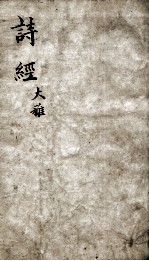 詩經
大雅